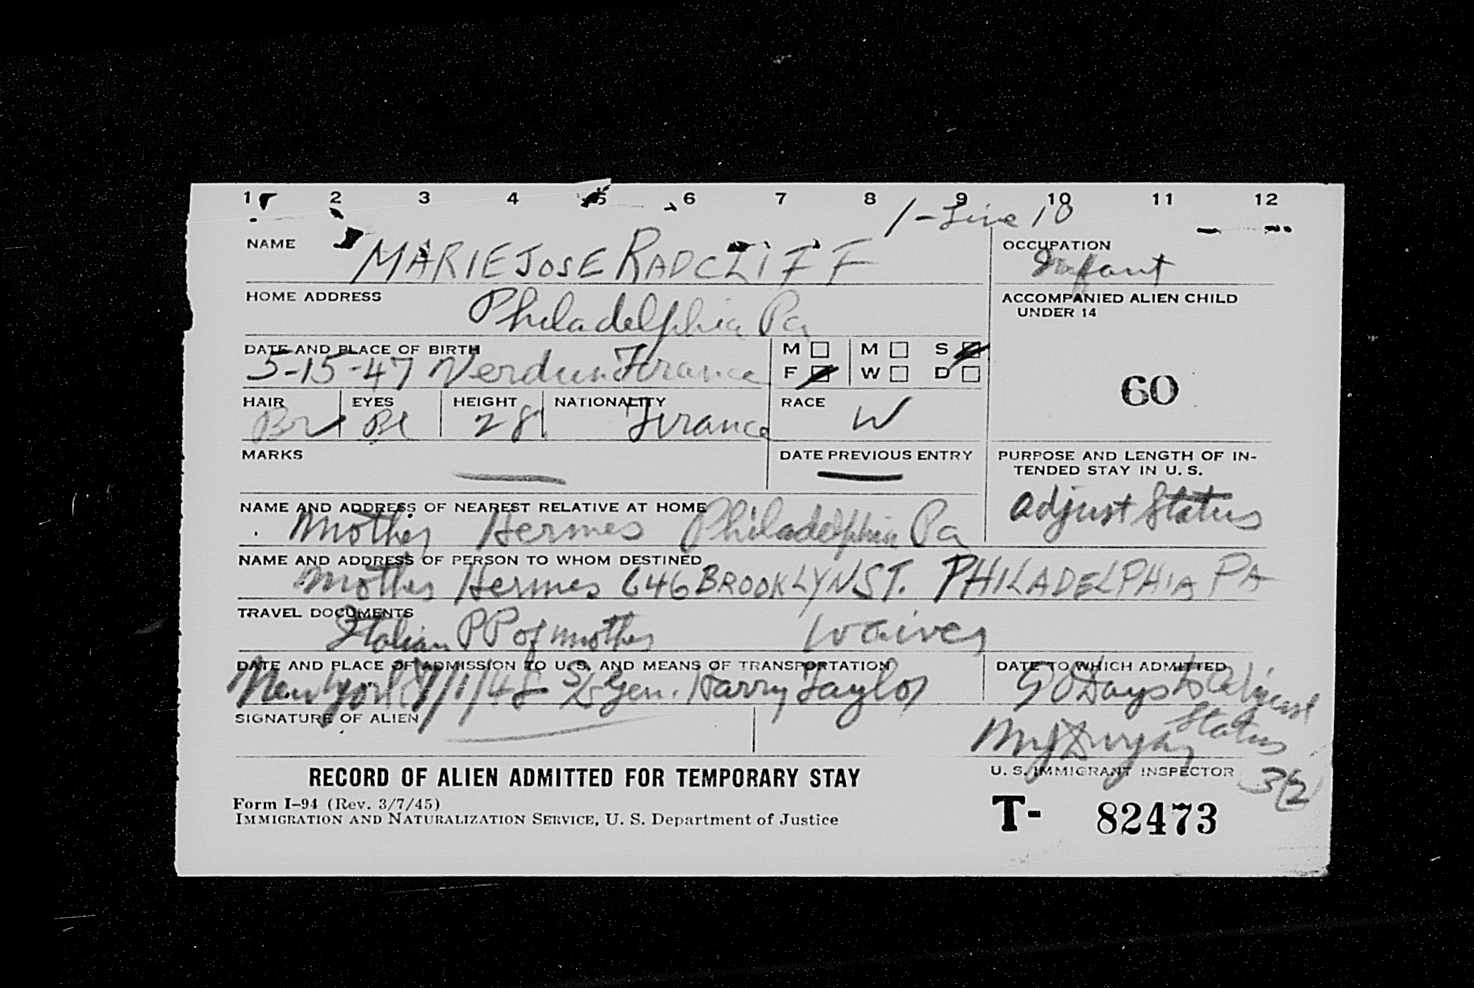 1 2 3 4 5 6 7 8 9 10 11 12
1-Line 10
NAME MARIE JOSE RADCLIFF
OCCUPATION
Infant
HOME ADDRESS
Philadelphia Pa
ACCOMPANIED ALIEN CHILD
UNDER 14
60
DATE AND PLACE OF BIRTH
5-15-47 Verdun France
M M S
F W D
HAIR EYES HEIGHT NATIONALITY RACE
Br Bl 28 France W
MARKS DATE PREVIOUS ENTRY
PURPOSE AND LENGTH OF IN-
TENDED STAY IN U. S.
adjust Status
NAME AND ADDRESS OF NEAREST RELATIVE AT HOME
Mother Hermes Philadelphia Pa
NAME AND ADDRESS OF PERSON TO WHOM DESTINED
Mother Hermes 646 BROOKLYN ST. PHILADELPHIA PA
TRAVEL DOCUMENTS
Italian PP of mother waived
DATE AND PLACE OF ADMISSION TO U.S. AND MEANS OF TRANSPORTATION
New York 7/1/48 S/S Gen. Harry Taylor
DATE TO WHICH ADMITTED
90 Days to adjust
Status
SIGNATURE OF ALIEN
U. S. IMMIGRANT INSPECTOR
RECORD OF ALIEN ADMITTED FOR TEMPORARY STAY
Form I-94 (Rev. 3/7/45)
IMMIGRATION AND NATURALIZATION SERVICE, U. S. Department of Justice
T- 82473